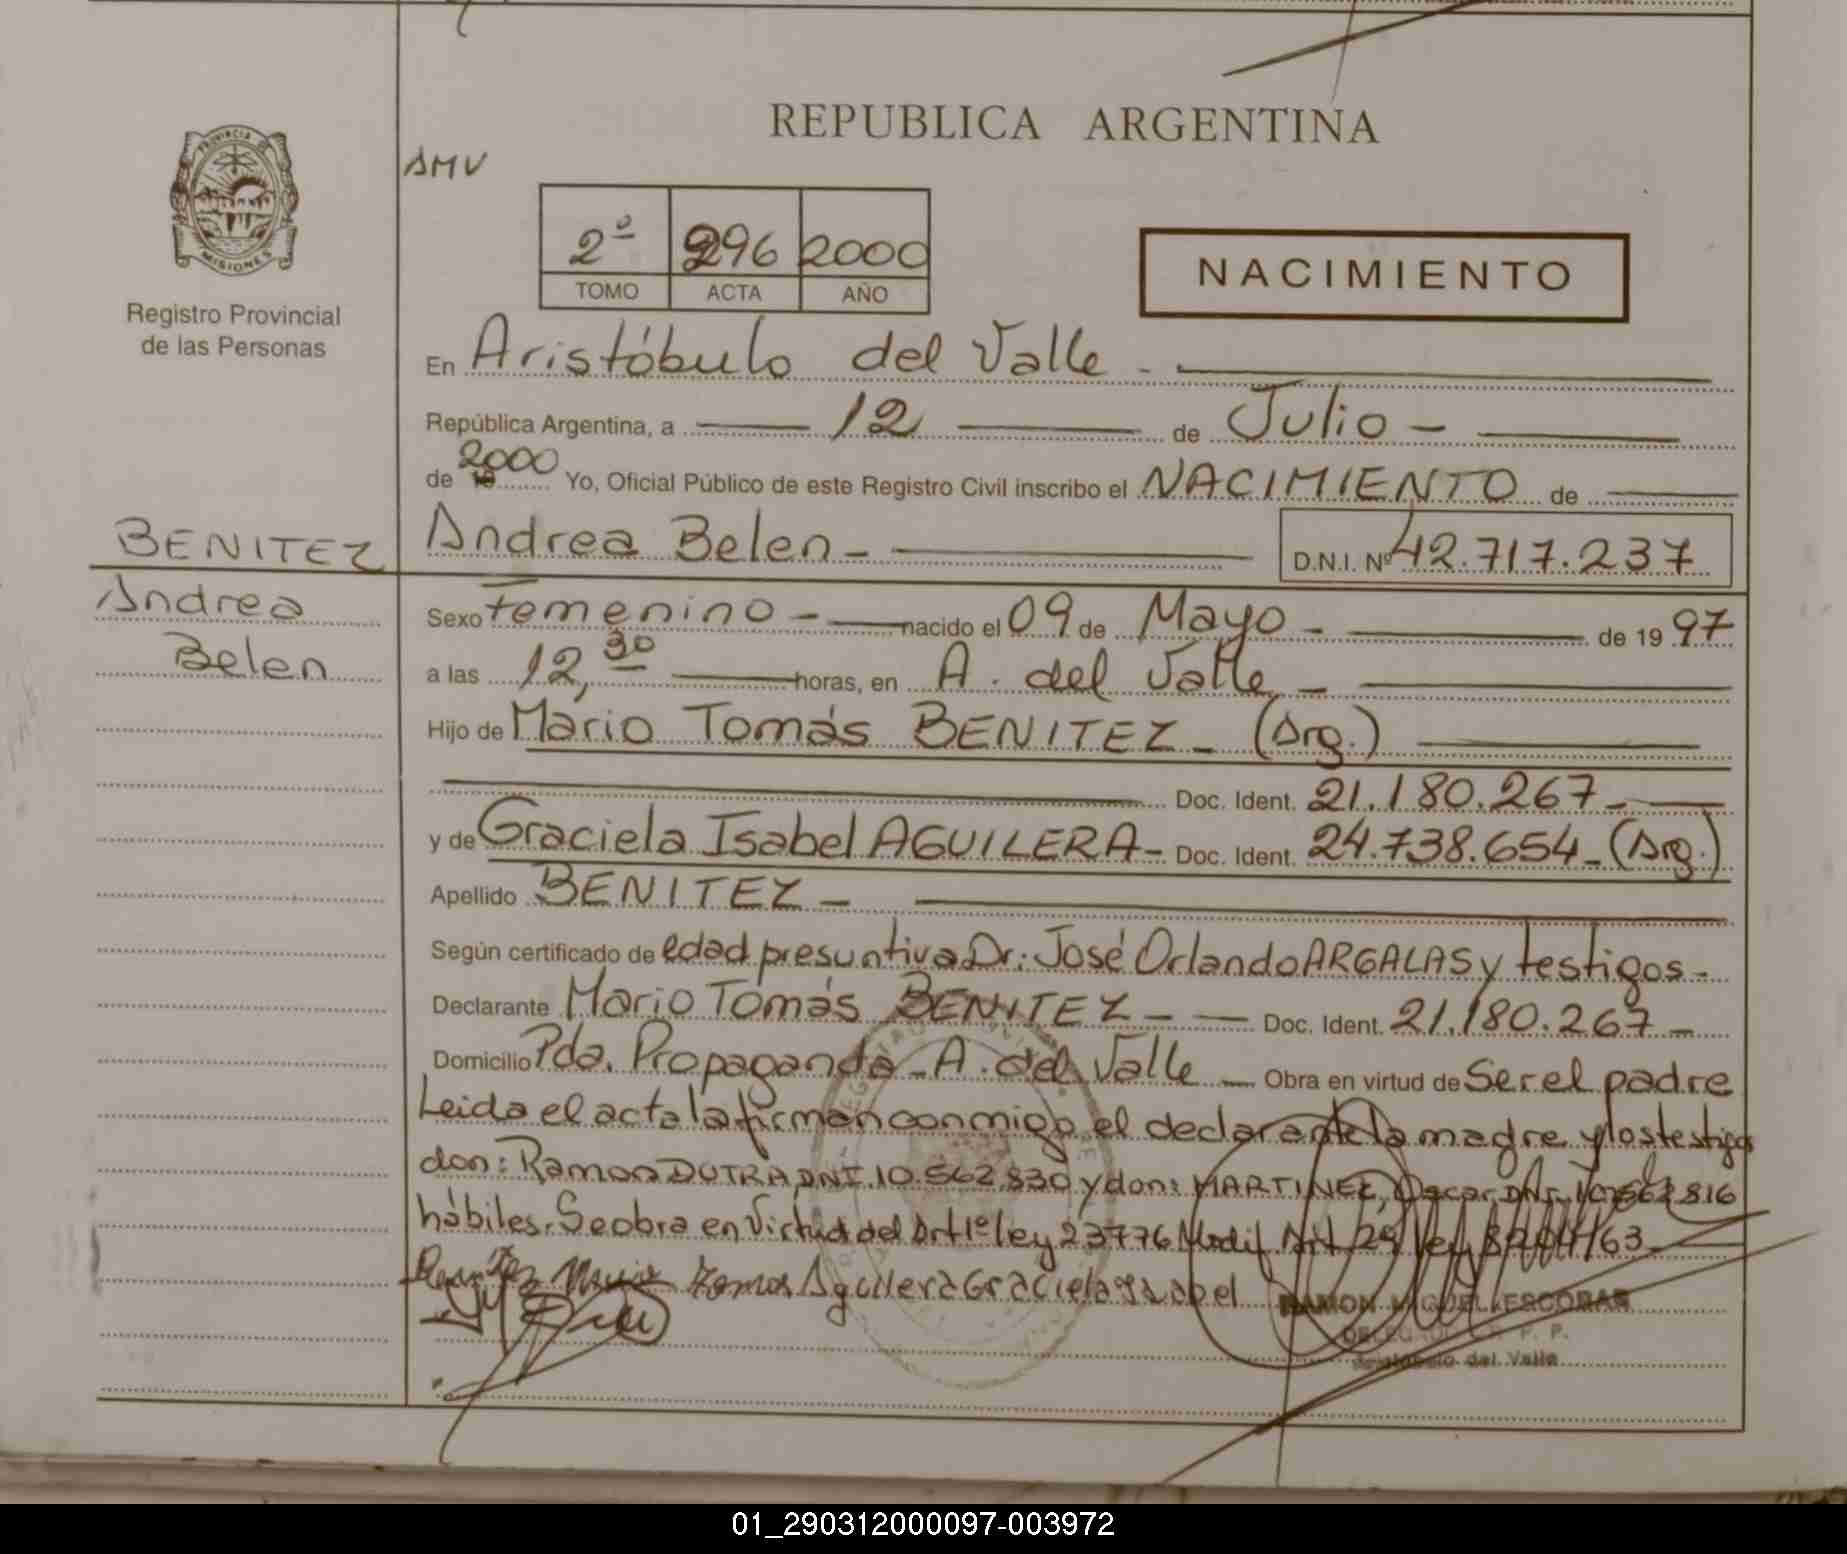 REPUBLICA ARGENTINA
PROVINCIA DE
MISIONES
Registro Provincial
de las Personas
AMV
2º 296 2000
TOMO ACTA AÑO
NACIMIENTO
En Aristóbulo del Valle -
República Argentina, a 12 de Julio -
de 2000 Yo, Oficial Público de este Registro Civil inscribo el NACIMIENTO de
BENITEZ
Andrea
Belen
Andrea Belen - D.N.I. Nº 42.717.237
Sexo Femenino - nacido el 09 de Mayo - de 19 97
a las 12,30 horas, en A. del Valle -
Hijo de Mario Tomás BENITEZ - (Arg.)
Doc. Ident. 21.180.267 -
y de Graciela Isabel AGUILERA - Doc. Ident. 24.738.654 - (Arg.)
Apellido BENITEZ -
Según certificado de edad presuntiva Dr: José Orlando ARGALAS y testigos -
Declarante Mario Tomás BENITEZ - - Doc. Ident. 21.180.267 -
Domicilio Pda. Propaganda - A. del Valle - Obra en virtud de Ser el padre
Leida el acta la firman conmigo el declarante la madre y los testigos
don: Ramon DUTRA DNI. 10.562.830 y don: MARTINEZ, Oscar DNI. 10.562.816
hábiles. Se obra en Virtud del Art 1º ley 23776 Modif. Art. 29 ley 8204/63
Benitez Mario Tomas Aguilera Graciela Isabel
RAMON MIGUEL ESCOBAR
DELEGADO R. P. P.
Aristóbulo del Valle
01_290312000097-003972